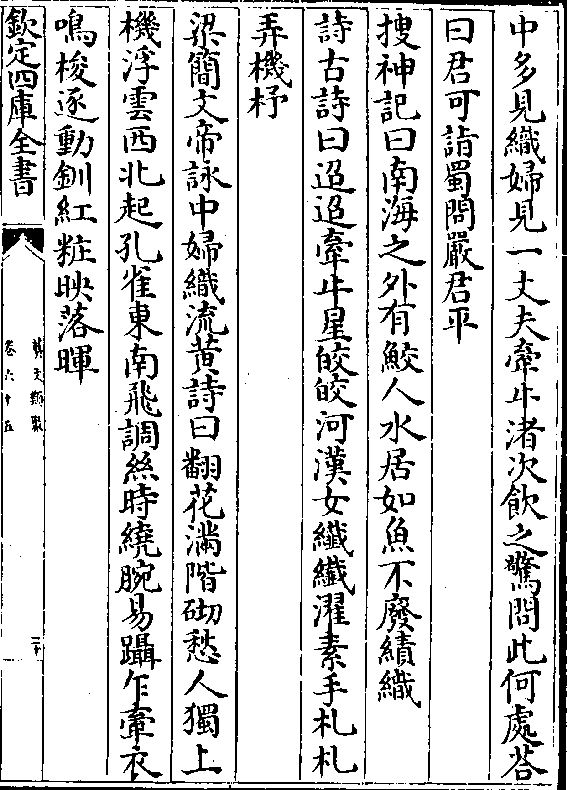 中多見織婦見一丈夫牽牛渚次飲之驚問此何處荅
曰君可詣蜀問嚴君平
搜神記曰南海之外有鮫人水居如魚不廢績織
詩古詩曰迢迢牽牛星皎皎河漢女纖纖濯素手札札
弄機杼
梁簡文帝詠中婦織流黄詩曰翻花滿階砌愁人獨上
機浮雲西北起孔雀東南飛調絲時繞腕易躡乍牽衣
鳴梭逐動釧紅粧映落暉
欽定四庫全書
藝文類聚
卷六十五